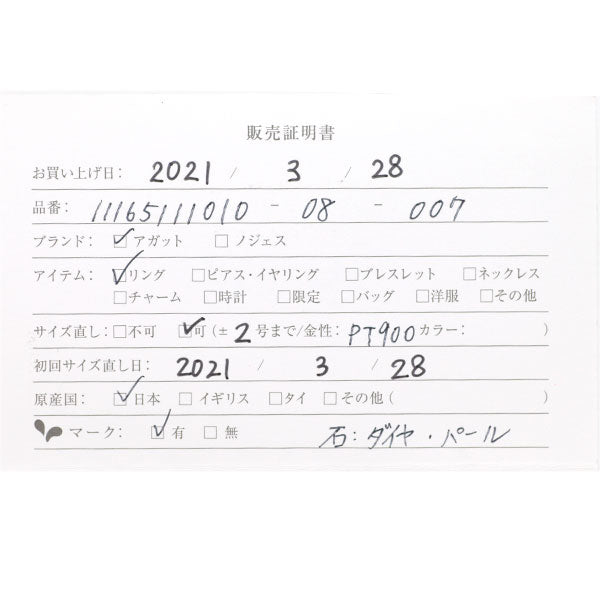 販売証明書
お買い上げ日： 2021 / 3 / 28
品番： 11165111010 - 08 - 007
ブランド： ☑アガット □ノジェス
アイテム： ☑リング □ピアス・イヤリング □ブレスレット □ネックレス
□チャーム □時計 □限定 □バッグ □洋服 □その他
サイズ直し：□不可 ☑可(± 2 号まで/金性： PT900 カラー： )
初回サイズ直し日： 2021 / 3 / 28
原産国： ☑日本 □イギリス □タイ □その他( )
マーク： ☑有 □無 石：ダイヤ・パール